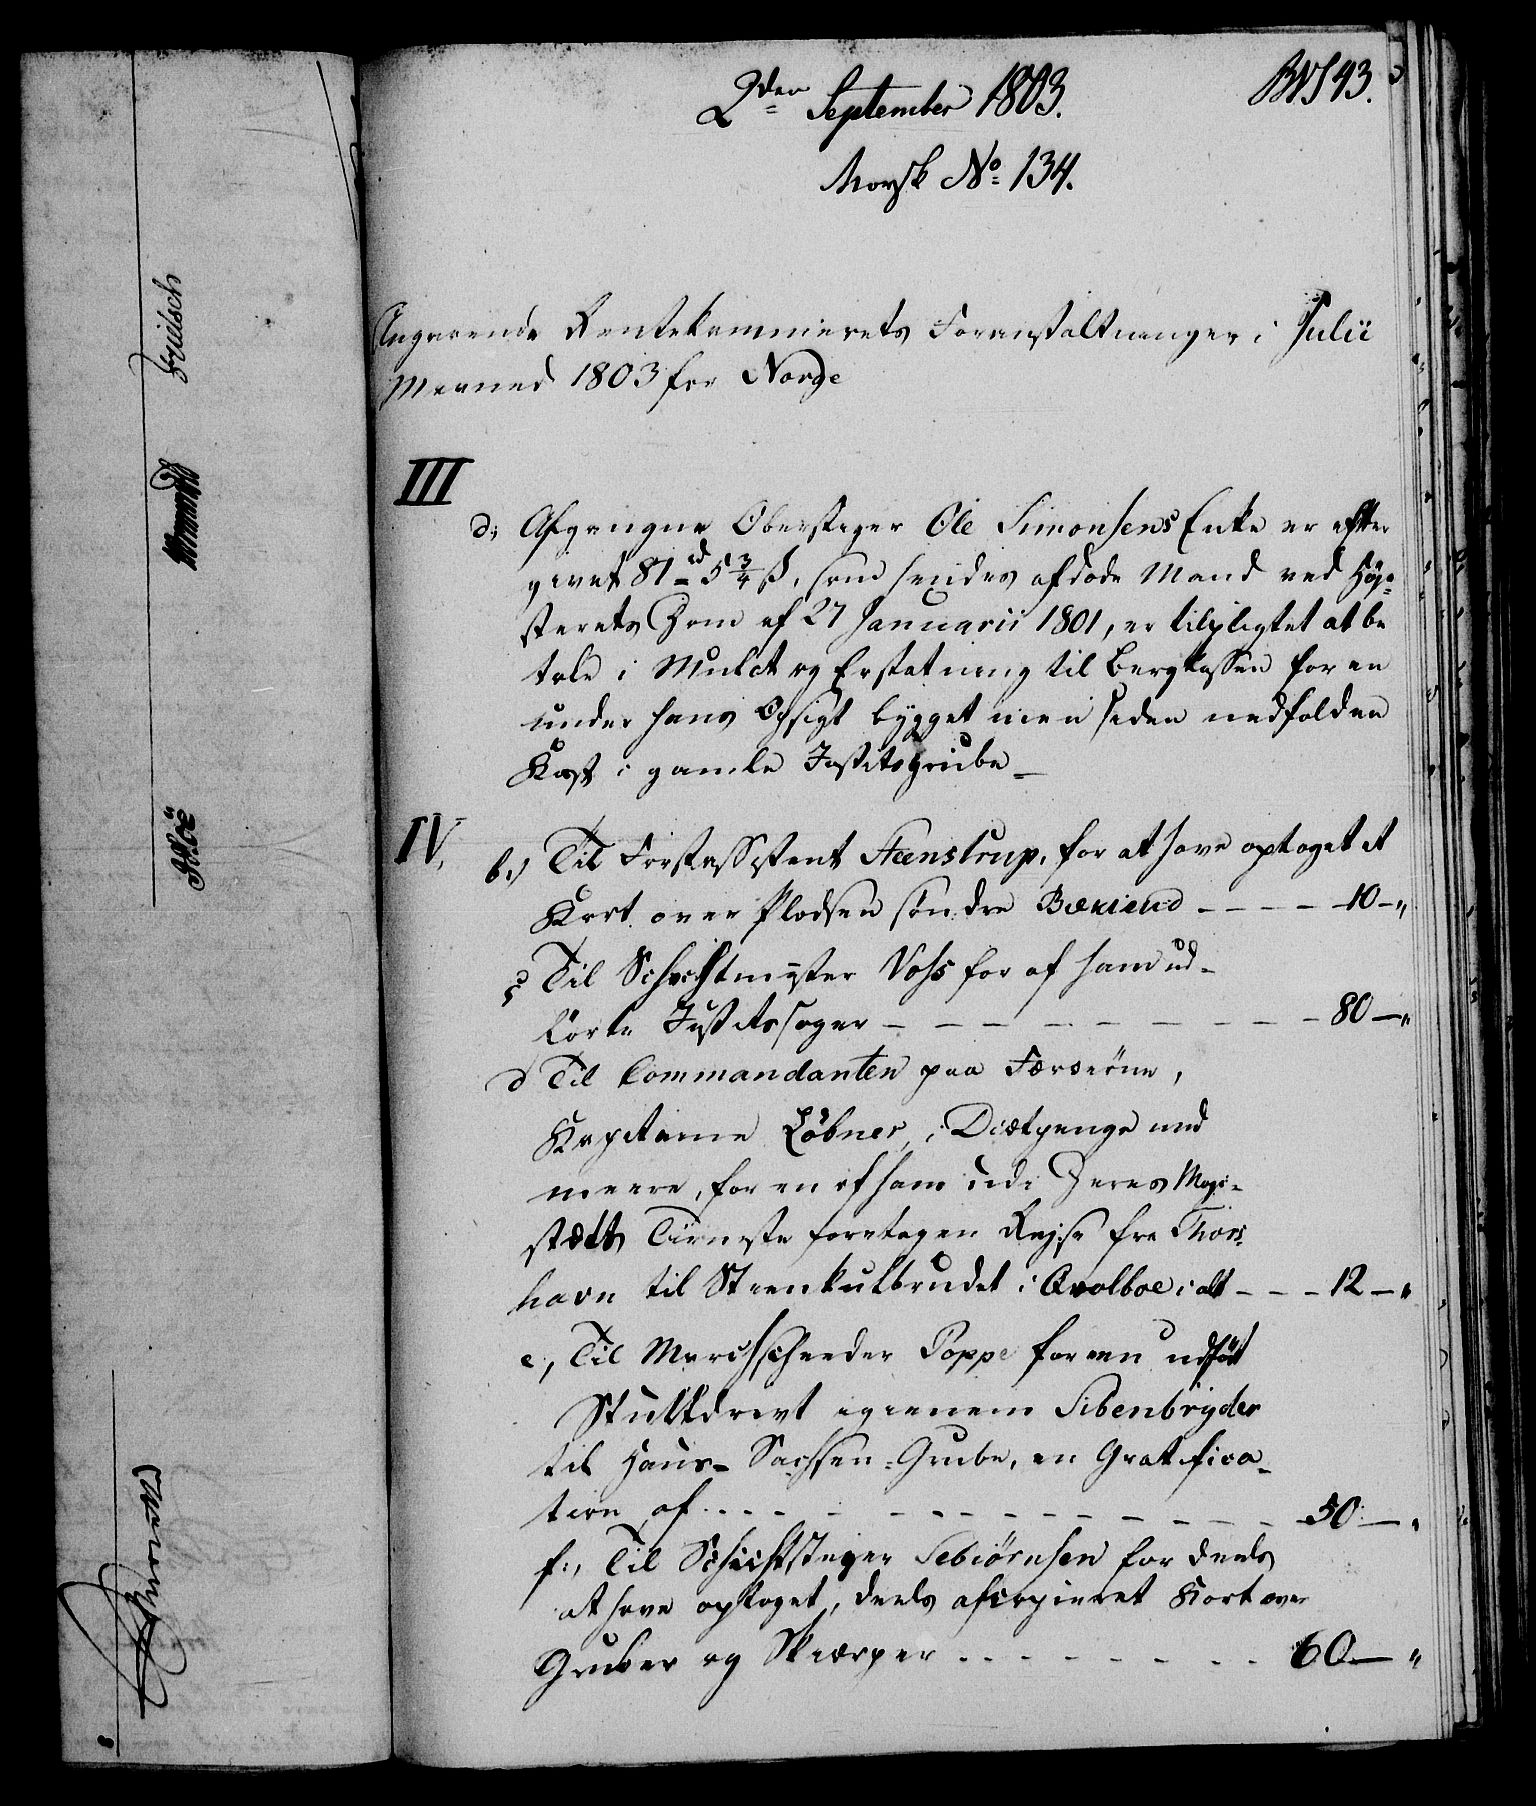 2den September 1803.
BN 43.
Norsk No 134.
Angaaende Rentekammerets Foranstaltninger i Julii
Maaned 1803 for Norge
III
d, Afgangne Oberstiger Ole Simonsens Enke er efter
givet 81 rd 5 3/4 ß, som hendes afdøde Mand ved Høye
sterets Dom af 27 Januarii 1801, er tilpligtet at be
tale i Mulct og Erstatning til Bergkassen for en
under hans Opsigt bygget men siden nedfalden
Kast i gamle Justitsgrube
IV.
b.) Til Forstassistent Steenstrup, for at have optaget et
Kort over Pladsen søndre Bekiend - - - - 10 - "
c Til Schichtmester Vohs for af ham ud-
førte Justitssager - - - - - - - - 80 - "
d Til Commandanten paa Færøerne,
Kapitaine Løbner, i Diætpenge med
meere, for en af ham udi Deres Maje-
stæts Tieneste foretagen Rejse fra Thors-
havn til Steenkulbrudet i Qvalboe i alt - - - 12 - "
e, Til Marchscheeder Poppe for een udført
Stuffdrevt igienem Sibenbryder
til Hans-Sachsen-Grube, en Gratifica-
tion af - - - - - - - - - 50 - "
f., Til Schichtstiger Sebiørnsen for deels
at have optaget, deels afcopieret Kort over
Gruber og Skiærper - - - - - - - 60 - "